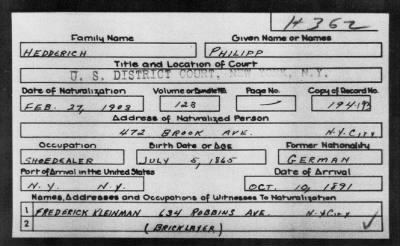 H 362
Family Name Given Name or Names
HEDDERICH PHILIPP
Title and Location of Court
U. S. DISTRICT COURT, NEW YORK, N.Y.
Date of Naturalization Volume or Bundle No. Page No. Copy of Record No.
FEB. 27, 1903 128 — 194-192
Address of Naturalized Person
472 BROOK AVE. N.Y. CITY
Occupation Birth Date or Age Former Nationality
SHOEDEALER JULY 5, 1865 GERMAN
Port of Arrival in the United States Date of Arrival
N.Y. N.Y. OCT. 10, 1891
Names, Addresses and Occupations of Witnesses To Naturalization
1 FREDERICK KLEINMAN 634 ROBBINS AVE. N.Y. CITY
2 (BRICKLAYER)